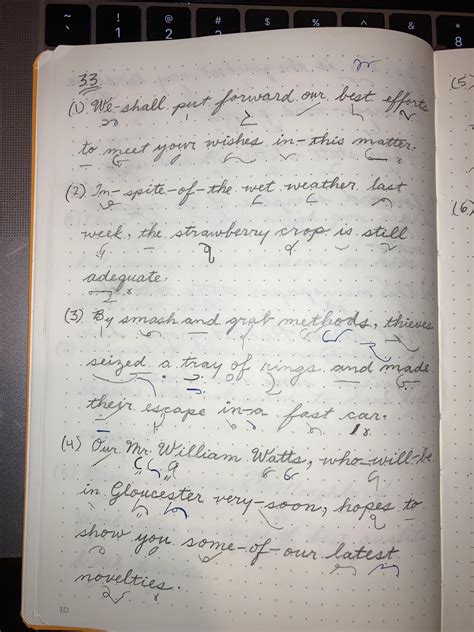 ~ ! @ # $ % ^ &
1 2 8
33
(1) We-shall put forward our best efforts
to meet your wishes in-this matter.
(2) In-spite-of-the wet weather last
week, the strawberry crop is still
adequate.
(3) By smash and grab methods, thieves
seized a tray of rings and made
their escape in-a fast car.
(4) Our Mr. William Watts, who-will-be
in Gloucester very-soon, hopes to
show you some-of-our latest
novelties.
10
(5)
(6)